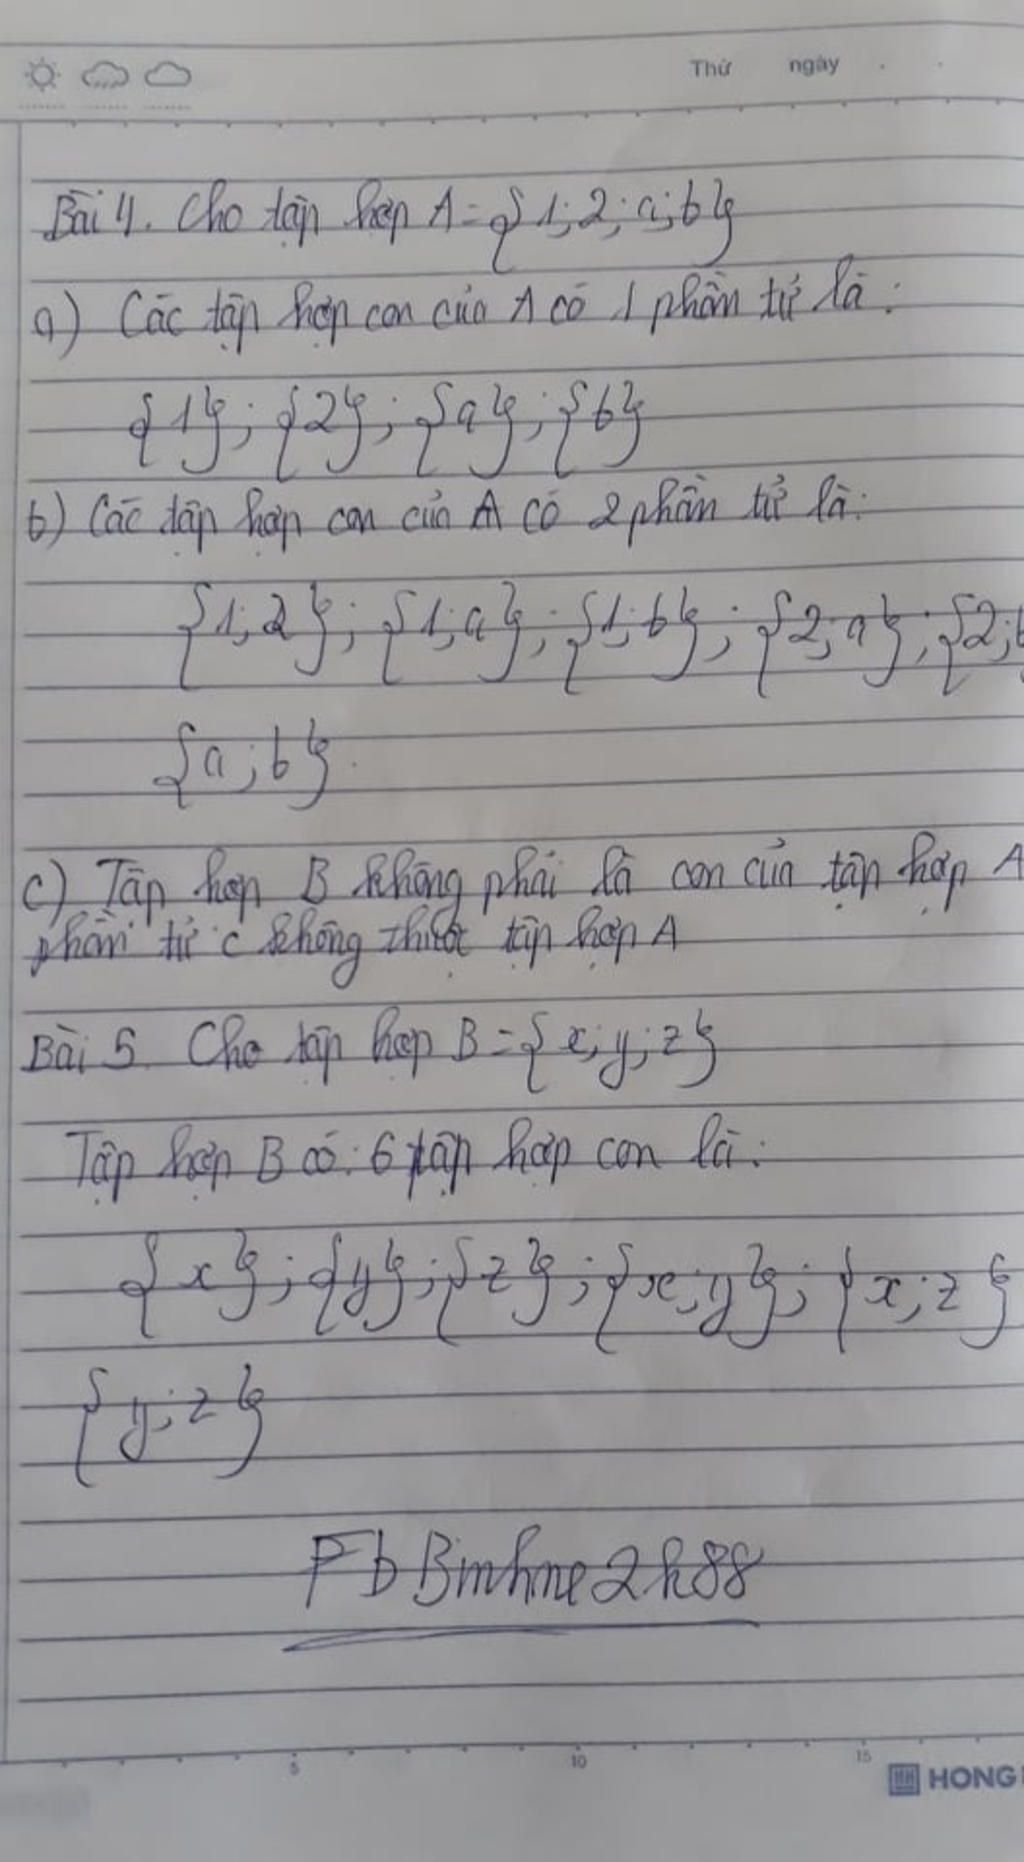 Thứ ngày
Bài 4. Cho tập hợp A = {1; 2; a; b}
a) Các tập hợp con của A có 1 phần tử là:
{1}; {2}; {a}; {b}
b) Các tập hợp con của A có 2 phần tử là:
{1; 2}; {1; a}; {1; b}; {2; a}; {2; b
{a; b}.
c) Tập hợp B không phải là con của tập hợp A
phần tử c không thuộc tập hợp A
Bài 5. Cho tập hợp B = {x; y; z}
Tập hợp B có: 6 tập hợp con là:
{x}; {y}; {z}; {x; y}; {x; z}
{y; z}
Fb Bmhme2k88
5 10 15
HH HONG